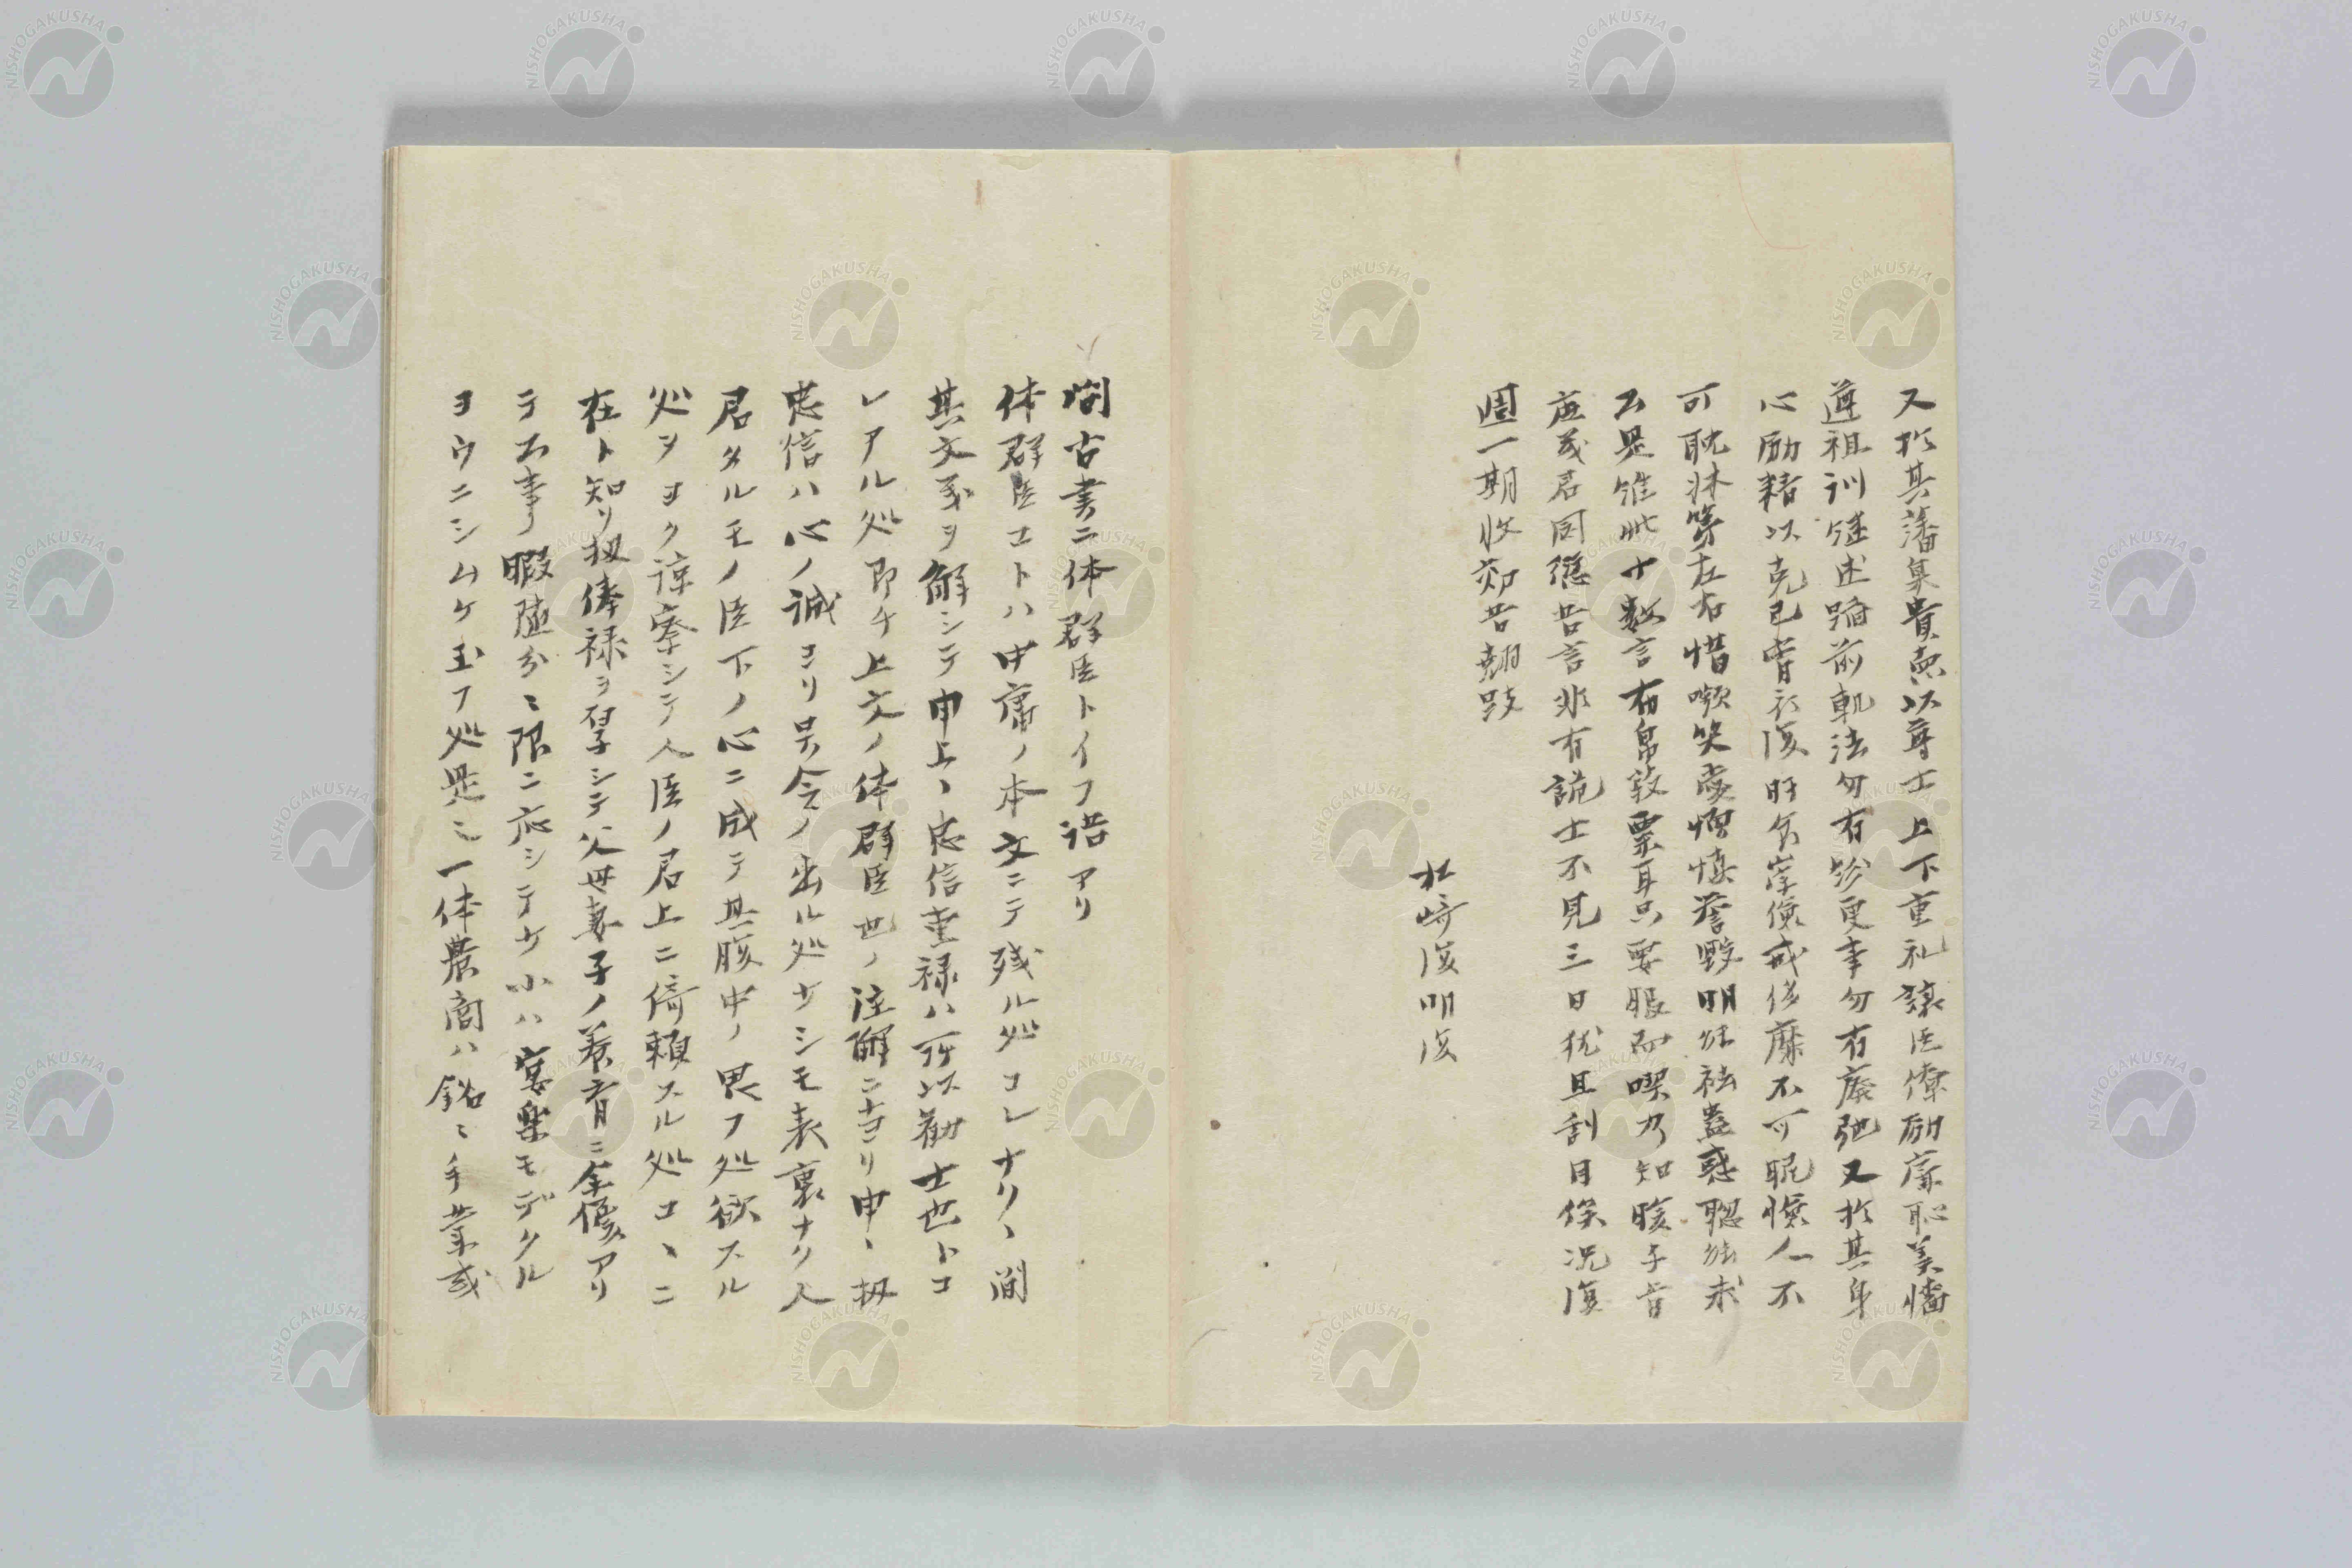 又於其藩臬貴徳以尊士上下重礼譲臣僚励廉恥美幡
遵祖訓継述踏前軌法勿有紛更事勿有廃弛又於其身
心励精以克己宵衣復旰食崇倹戒侈靡不可昵憸人不
可耽牀笫左右惜嚬笑愛憎慎誉毀明欲袪蠱惑聡欲求
公是維此十数言布帛致粟耳只要服而喫乃知暖与旨
庶幾君同德告言非有詭士不見三日犹且刮目俟況復
周一期收効苦翹跂
松崎復明復
間古書ニ体群臣トイフ語アリ
体群臣コトハ中庸ノ本文ニテ残ル処コレナク、間
其文義ヲ解シテ申上、忠信重禄ハ所以勧士也トコ
レアル処即チ上文ノ体群臣也ノ注解ニナリ申、扨
忠信ハ心ノ誠ヨリ号令ノ出ル処ナシモ表裏ナク人
君タルモノ臣下ノ心ニ成テ其腹中ノ思フ処欲スル
処ヲヨク諒察シテ人臣ノ君上ニ倚頼スル処コヽニ
在ト知リ扨俸禄ヲ厚シテ父母妻子ノ養育ニ全備アリ
テ公事ノ暇随分ニ限ニ応シテナ小ハ宴楽モデクル
ヨウニシムケ玉フ処是ニ一体農商ハ銘ヽ手業或